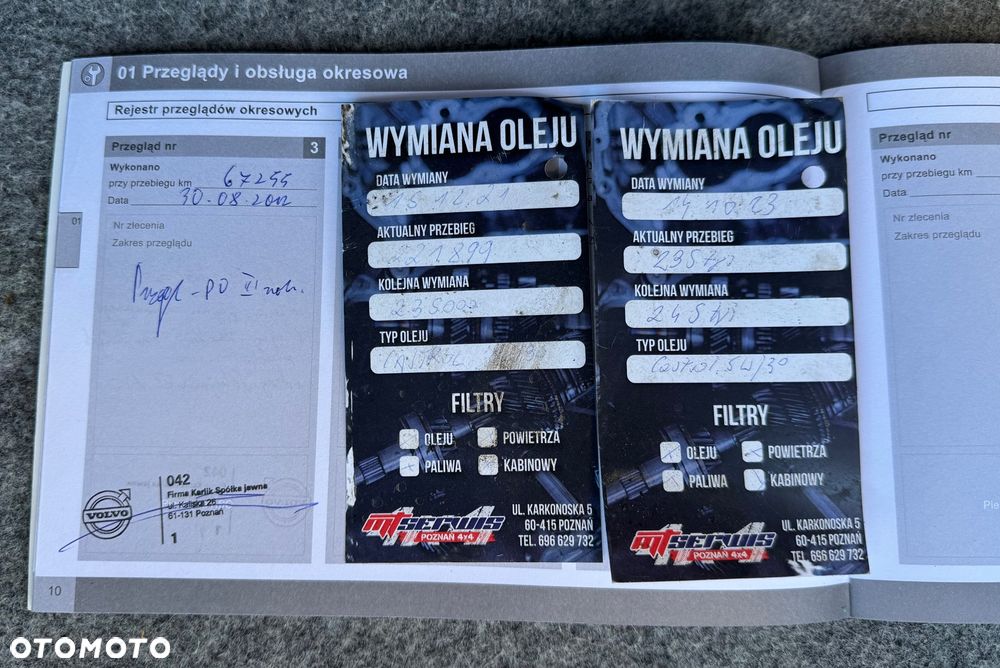 01 Przeglądy i obsługa okresowa
Rejestr przeglądów okresowych
Przegląd nr 3
Wykonano
przy przebiegu km 67255
Data 30.08.2012
Nr zlecenia
Zakres przeglądu
01
VOLVO
042
Firma Karlik Spółka jawna
ul. Kaliska 28
61-131 Poznań
1
10
WYMIANA OLEJU
DATA WYMIANY
15 12.21
AKTUALNY PRZEBIEG
221899
KOLEJNA WYMIANA
TYP OLEJU
FILTRY
OLEJU
POWIETRZA
PALIWA
KABINOWY
MTSERWIS
POZNAŃ 4x4
UL. KARKONOSKA 5
60-415 POZNAŃ
TEL. 696 629 732
WYMIANA OLEJU
DATA WYMIANY
14 10.23
AKTUALNY PRZEBIEG
235 tys
KOLEJNA WYMIANA
245 tys
TYP OLEJU
Castrol 5W/30
FILTRY
OLEJU
POWIETRZA
PALIWA
KABINOWY
MTSERWIS
POZNAŃ 4x4
UL. KARKONOSKA 5
60-415 POZNAŃ
TEL. 696 629 732
Przegląd nr
Wykonano
przy przebiegu km
Data
Nr zlecenia
Zakres przeglądu
OTOMOTO